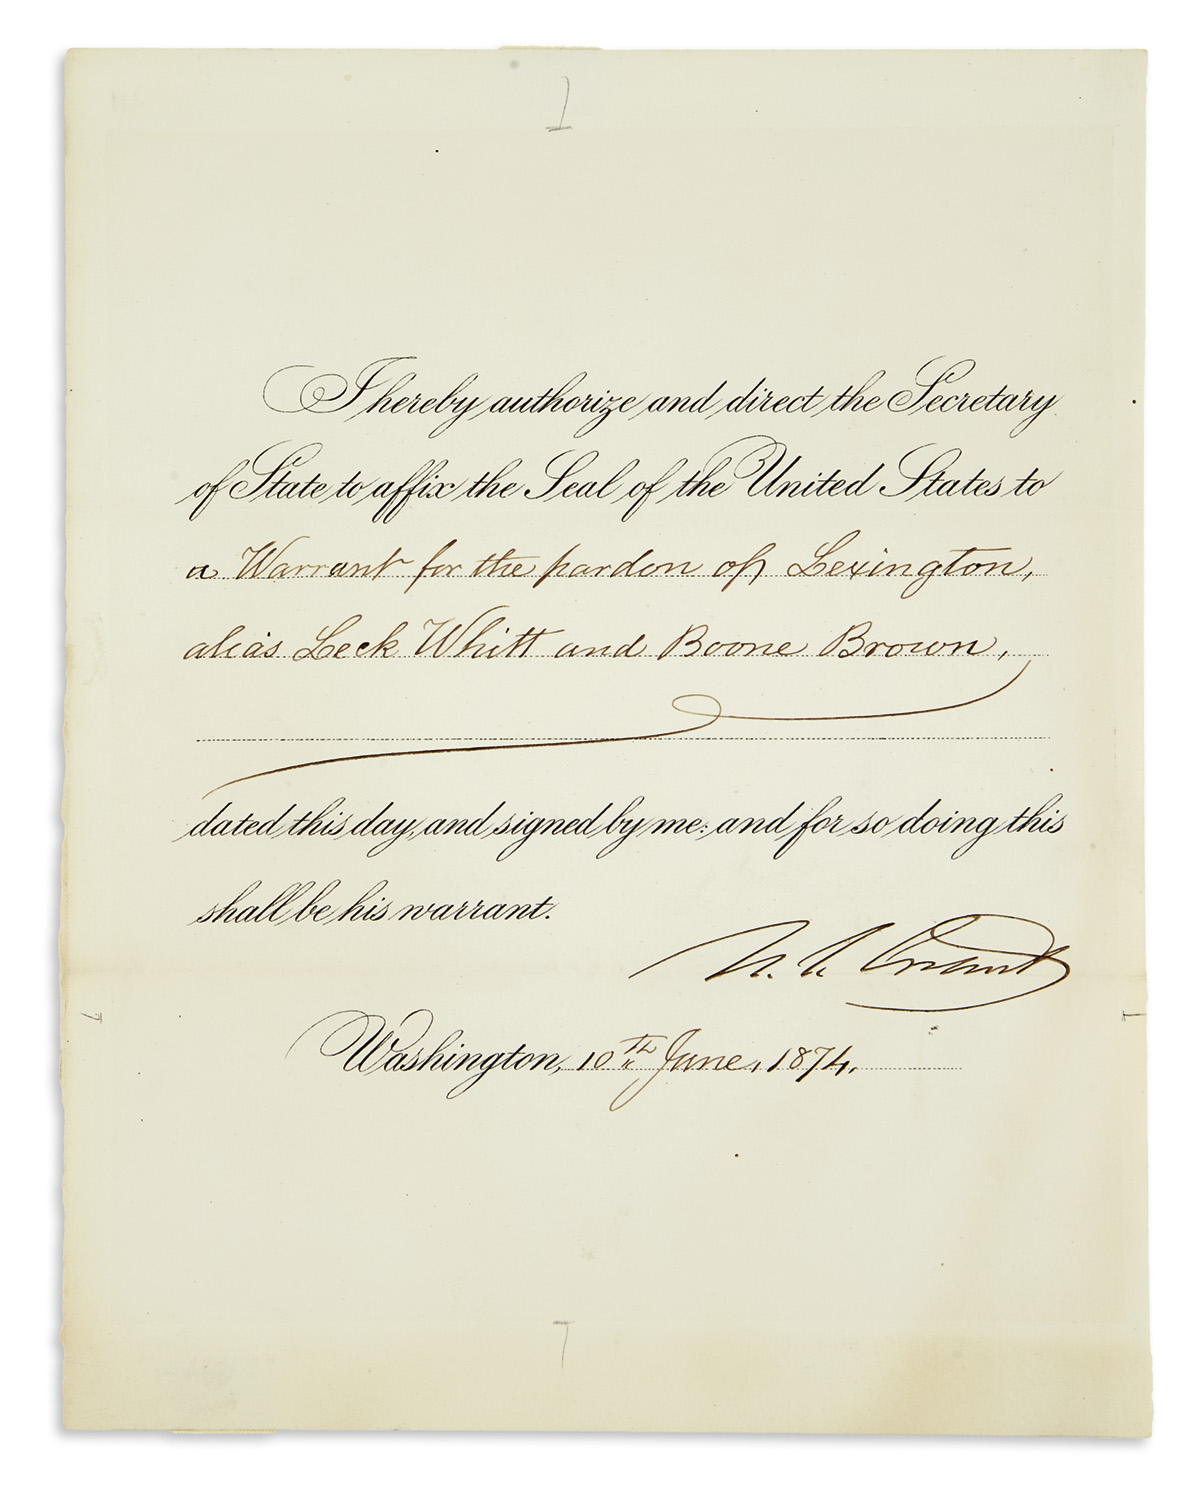 I hereby authorize and direct the Secretary
of State to affix the Seal of the United States to
a Warrant for the pardon of Lexington,
alias Leck Whitt and Boone Brown,
dated this day, and signed by me: and for so doing this
shall be his warrant.
U. S. Grant
Washington, 10TH June, 1874.